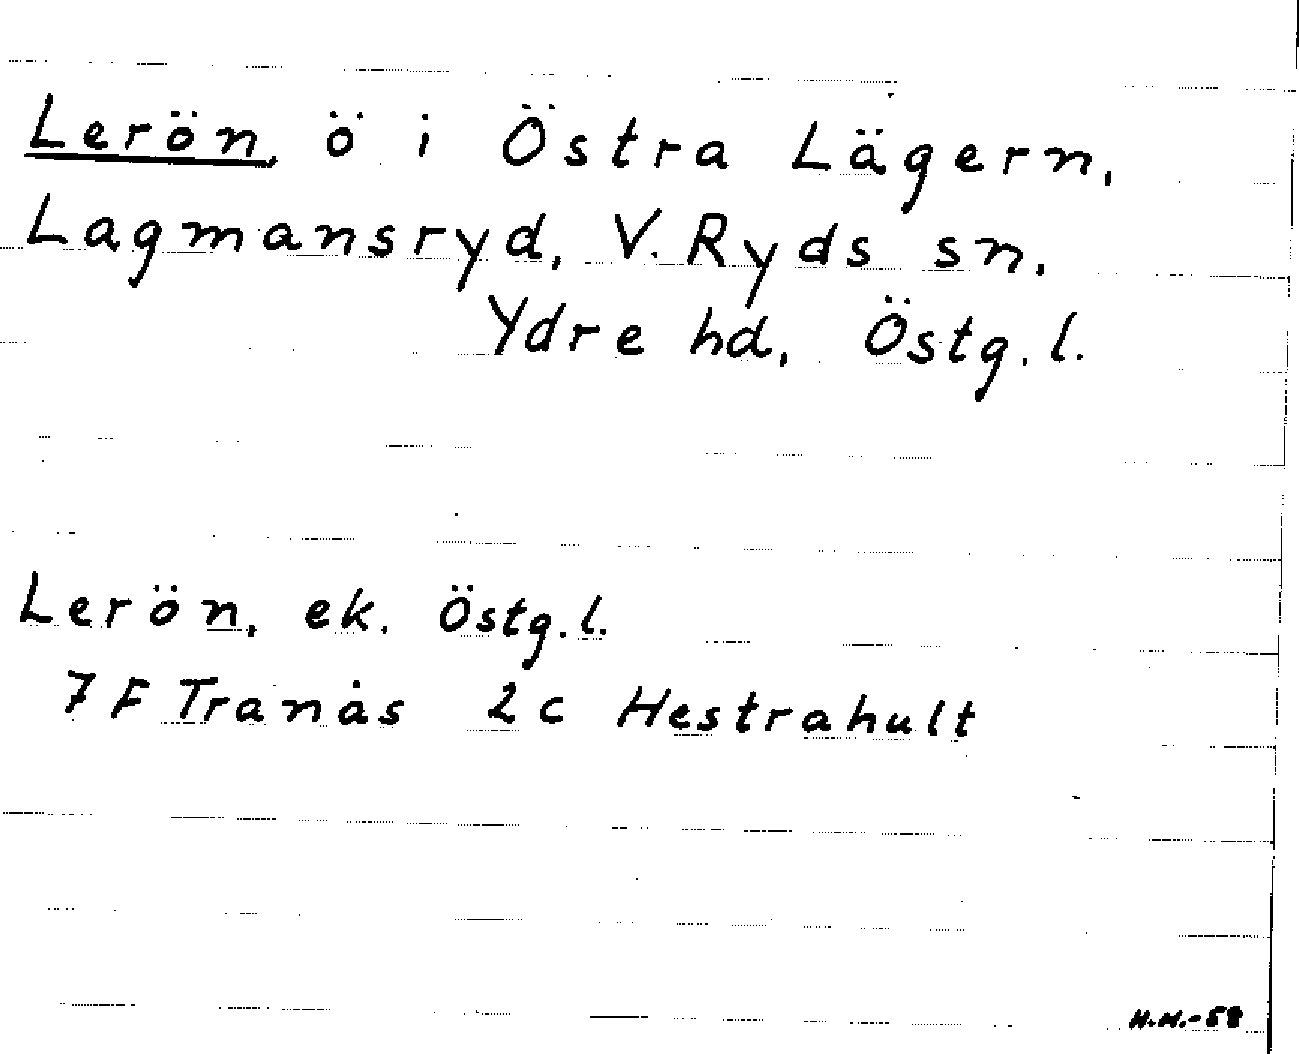 Lerön, ö i Östra Lägern,
Lagmansryd, V. Ryds sn,
Ydre hd, Östg. l.
Lerön, ek. Östg. l.
7 F Tranås 2 c Hestrahult